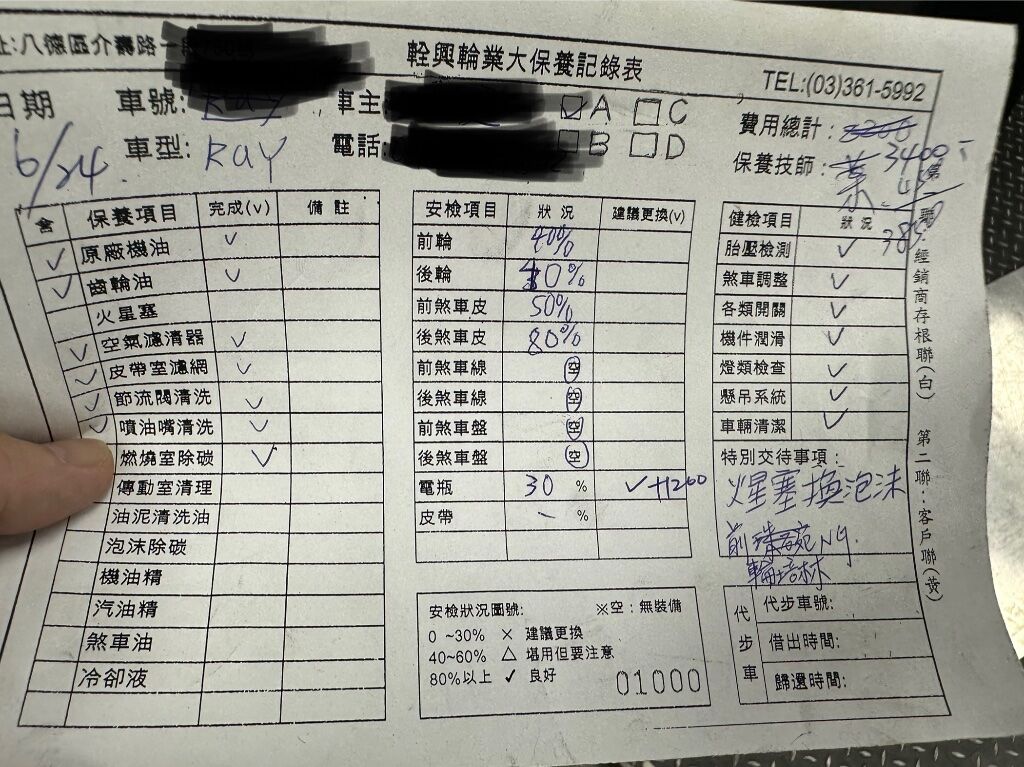 址:八德區介壽路一段
銓興輪業大保養記錄表
TEL:(03)361-5992
日期 6/24
車號:
車主
☑A ☐C
☐B ☐D
車型: RAY
電話:
費用總計:
3400
保養技師: 葉
3850
含 保養項目 完成(v) 備註
✓ 原廠機油 ✓
✓ 齒輪油 ✓
火星塞
✓ 空氣濾清器 ✓
✓ 皮帶室濾網 ✓
✓ 節流閥清洗 ✓
✓ 噴油嘴清洗 ✓
燃燒室除碳 ✓
傳動室清理
油泥清洗油
泡沫除碳
機油精
汽油精
煞車油
冷卻液
安檢項目 狀況 建議更換(v)
前輪 40%
後輪 10%
前煞車皮 50%
後煞車皮 80%
前煞車線 空
後煞車線 空
前煞車盤 空
後煞車盤 空
電瓶 30 % ✓+1200
皮帶 - %
安檢狀況圖號: ※空:無裝備
0 ~30% × 建議更換
40~60% △ 堪用但要注意
80%以上 ✓ 良好
01000
健檢項目 狀況
胎壓檢測 ✓
煞車調整 ✓
各類開關 ✓
機件潤滑 ✓
燈類檢查 ✓
懸吊系統 ✓
車輛清潔 ✓
特別交待事項:
火星塞換泡沫
前珠碗NG.
輪培林
代步車
代步車號:
借出時間:
歸還時間:
第一聯:經銷商存根聯(白) 第二聯:客戶聯(黃)